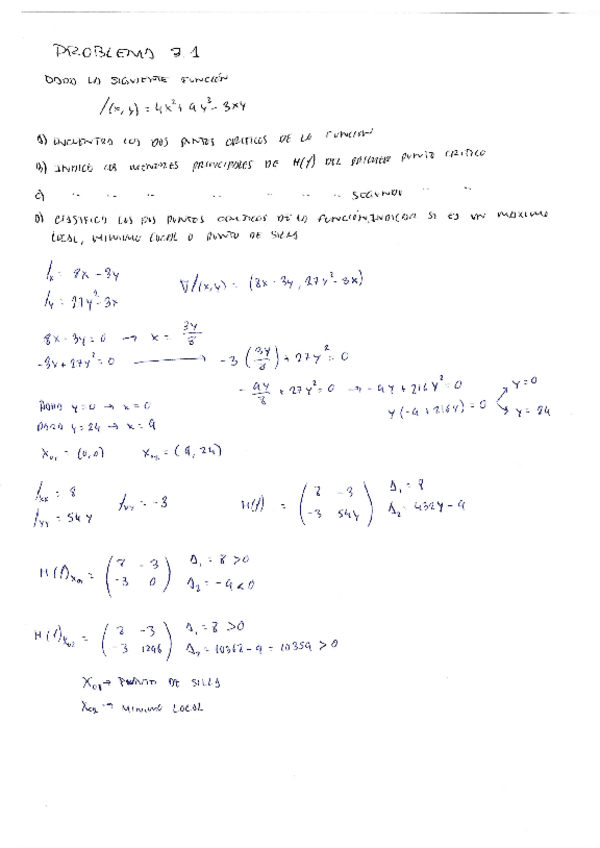 PROBLEMA 3.1
DADA LA SIGUIENTE FUNCIÓN
f(x,y) = 4x² + 9y³ - 3xy
A) ENCUENTRA LOS DOS PUNTOS CRITICOS DE LA FUNCION
B) INDICA LOS MENORES PRINCIPALES DE H(f) DEL PRIMER PUNTO CRITICO
C) " " " " " " " SEGUNDO " "
D) CLASIFICA LOS DOS PUNTOS CRITICOS DE LA FUNCIÓN, INDICAR SI ES UN MAXIMO
LOCAL, MINIMO LOCAL O PUNTO DE SILLA
fx = 8x - 3y
∇f(x,y) = (8x - 3y, 27y² - 3x)
fy = 27y² - 3x
8x - 3y = 0 → x = 3y/8
-3x + 27y² = 0 → -3(3y/8) + 27y² = 0
-9y/8 + 27y² = 0 → -9y + 216y² = 0
y(-9 + 216y) = 0
y = 0
y = 24
PARA y = 0 → x = 0
PARA y = 24 → x = 9
X01 = (0,0) X02 = (9,24)
fxx = 8
fyy = 54y
fxy = -3
H(f) = (8 -3
-3 54y)
Δ1 = 8
Δ2 = 432y - 9
H(f)X01 = (8 -3
-3 0)
Δ1 = 8 > 0
Δ2 = -9 < 0
H(f)X02 = (8 -3
-3 1296)
Δ1 = 8 > 0
Δ2 = 10368 - 9 = 10359 > 0
X01 → PUNTO DE SILLA
X02 → MINIMO LOCAL